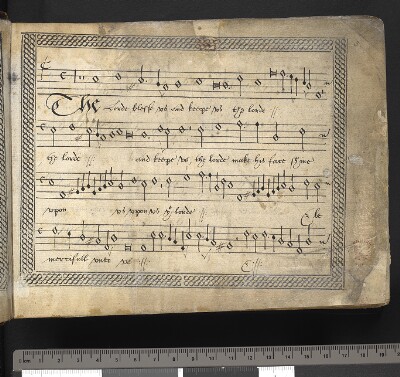 The Lorde blesse us and keepe us the lorde
the lorde and keepe us the lorde make hys face shyne
upon us upon us ye lorde & be
mercifull unto us